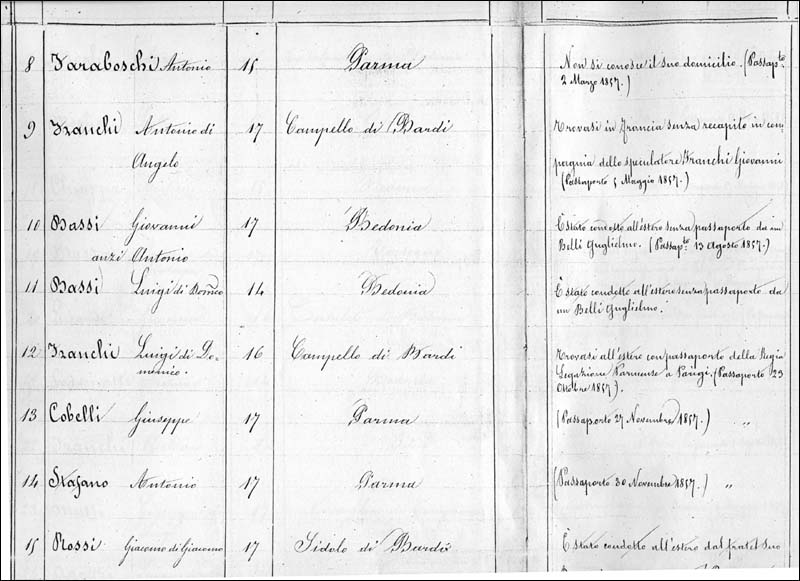 8 Taraboschi Antonio 15 Parma Non si conosce il suo domicilio. (Passapto
2 Marzo 1857.)
9 Franchi Antonio di 17 Campello di Bardi Trovasi in Francia senza recapito in com
Angelo pagnia dello speculatore Franchi Giovanni
(Passaporto 5 Maggio 1857.)
10 Bassi Giovanni 17 Bedonia È stato condotto all'estero senza passaporto da un
anzi Antonio Belli Guglielmo. (Passapto 13 Agosto 1857.)
11 Bassi Luigi di Domco 14 Bedonia È stato condotto all'estero senza passaporto da
un Belli Guglielmo.
12 Franchi Luigi di Do- 16 Campello di Bardi Trovasi all'estero con passaporto della Regia
menico. Legazione Parmense a Parigi. (Passaporto 23
Ottobre 1857.)
13 Cobelli Giuseppe 17 Parma (Passaporto 27 Novembre 1857.) "
14 Stefano Antonio 17 Parma (Passaporto 30 Novembre 1857.) "
15 Rossi Giacomo di Giacomo 17 Sidolo di Bardi È stato condotto all'estero dal fratel suo